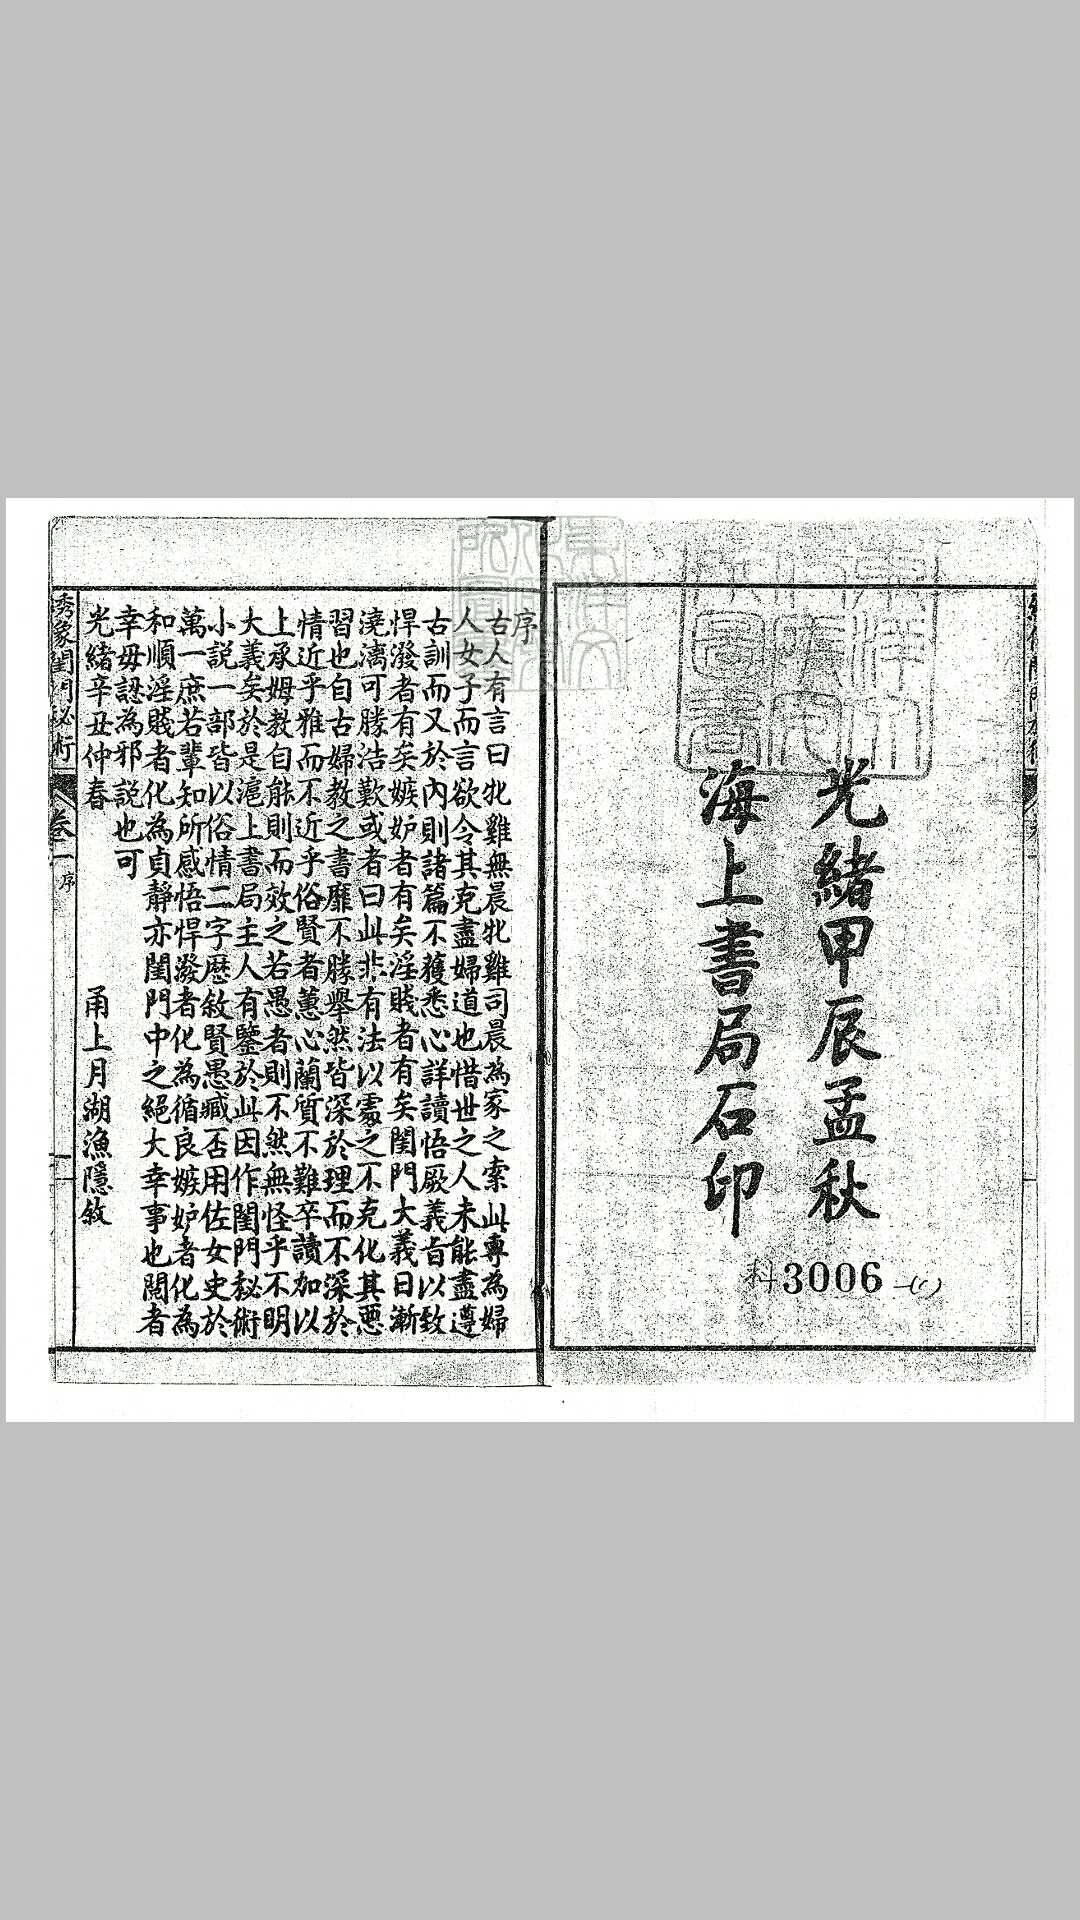 光緒甲辰孟秋
海上書局石印
3006
序
古人有言曰牝雞無晨牝雞司晨為家之索此專為婦
人女子而言欲令其克盡婦道也惜世之人未能盡遵
古訓而又於內則諸篇不獲悉心詳讀悟厥義旨以致
悍潑者有矣嫉妒者有矣淫賤者有矣閨門大義日漸
澆漓可勝浩歎或者曰此非有法以處之不克化其惡
習也自古婦教之書靡不勝舉然皆深於理而不深於
情近乎雅而不近乎俗賢者蕙心蘭質不難卒讀加以
上承姆教自能則而效之若愚者則不然無怪乎不明
大義矣於是滬上書局主人有鑒於此因作閨門秘術
小説一部皆以俗情二字歷敘賢愚臧否用佐女史於
萬一庶若輩知所感悟悍潑者化為循良嫉妒者化為
和順淫賤者化為貞靜亦閨門中之絕大幸事也閱者
幸毋認為邪説也可
光緒辛丑仲春 甬上月湖漁隱敘
秀象閨門秘術 卷一 序